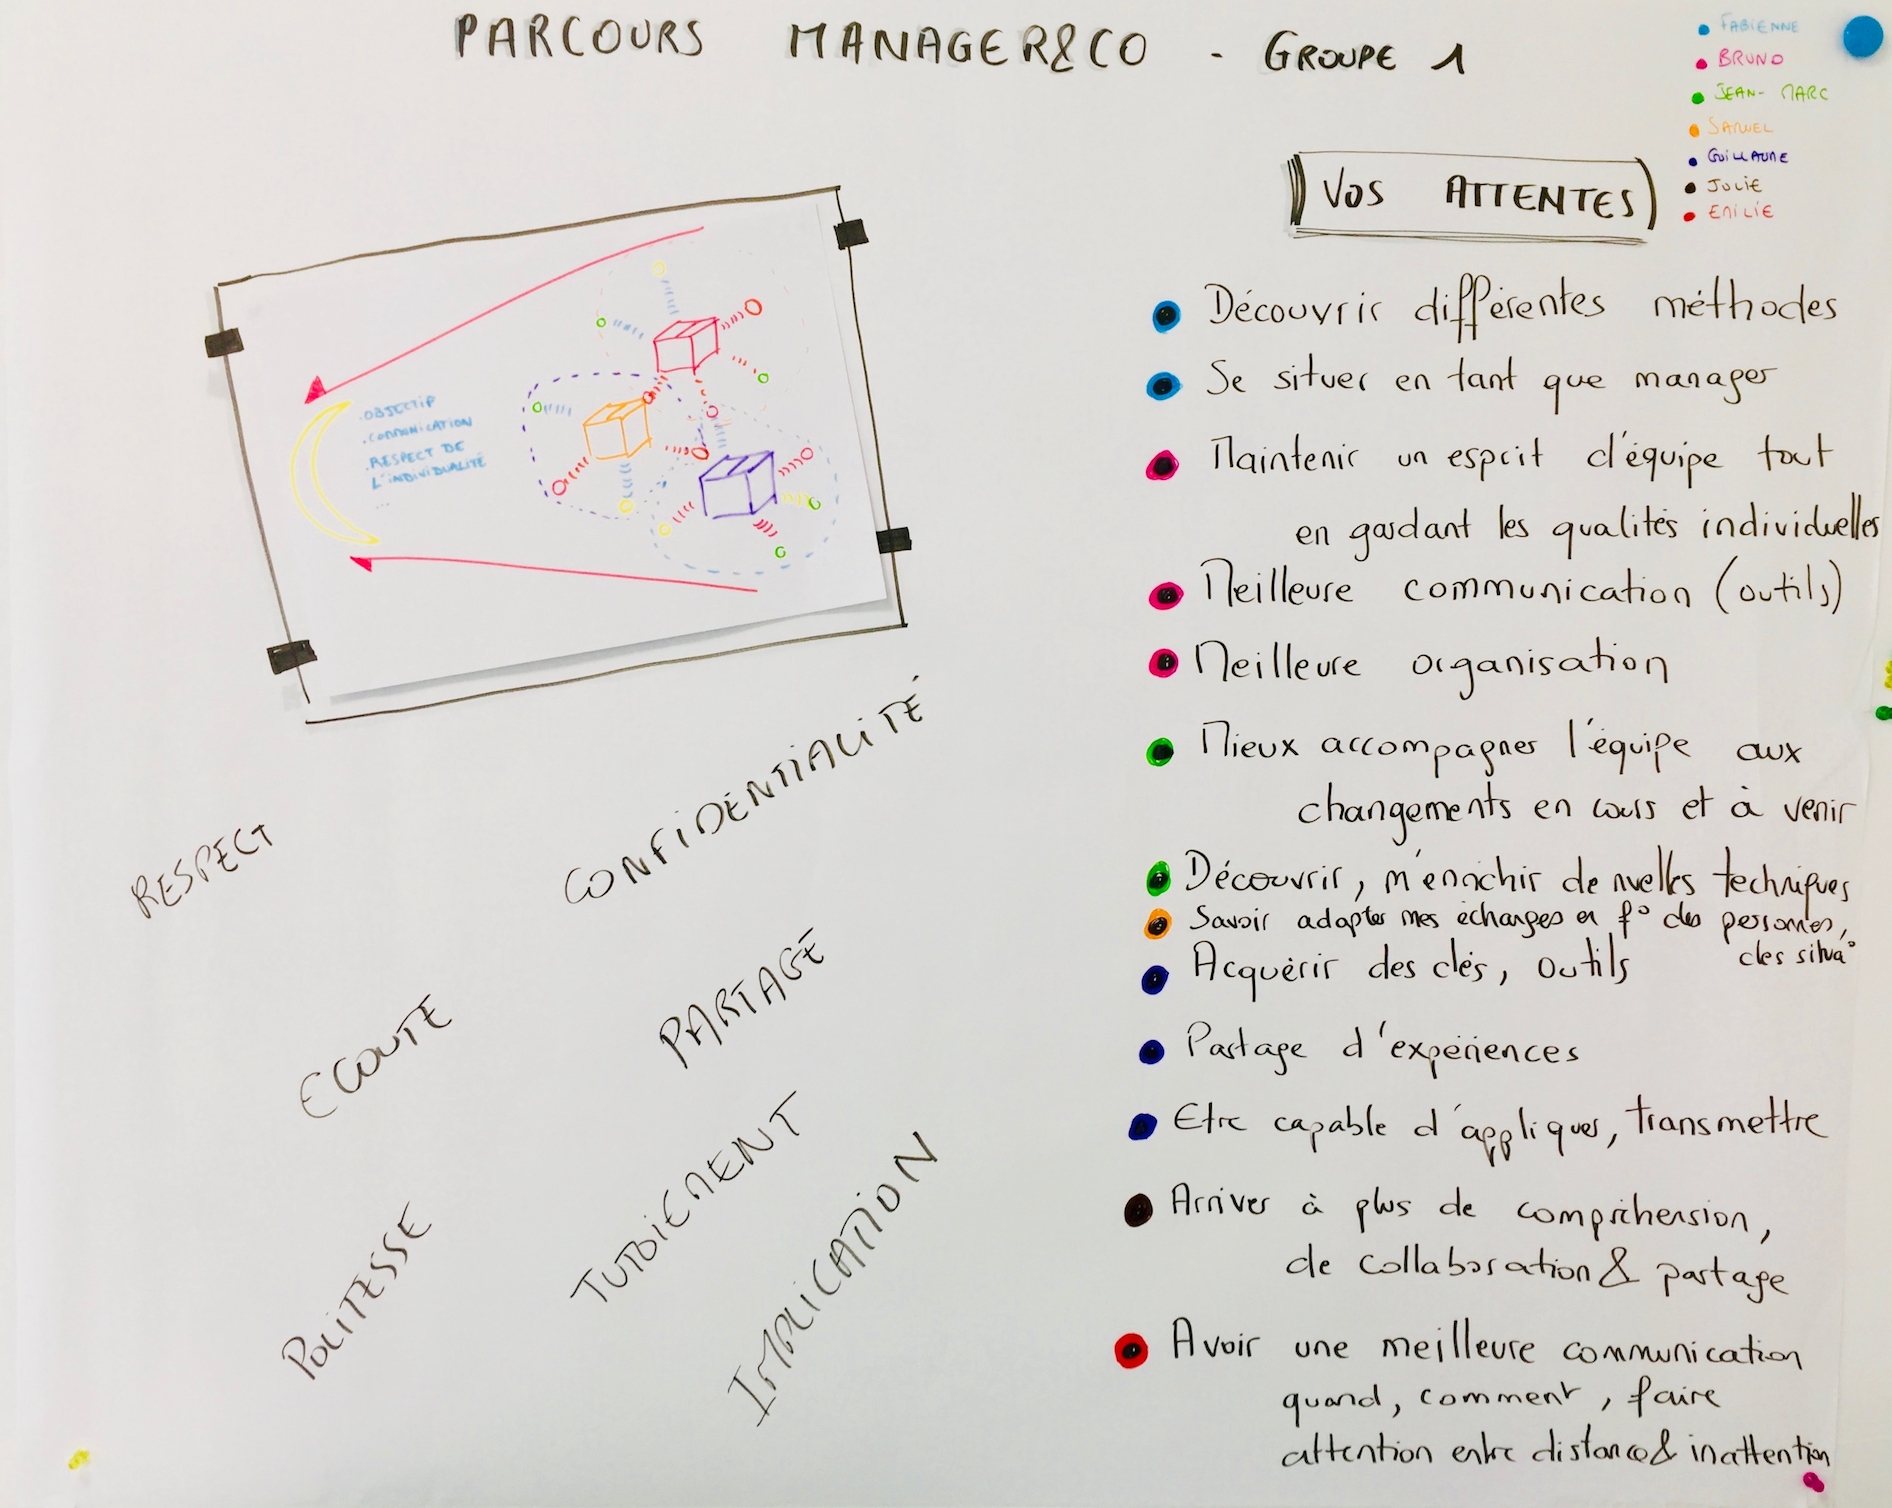 PARCOURS MANAGER&CO - GROUPE 1
FABIENNE
BRUNO
JEAN-MARC
SAMUEL
GUILLAUME
JULIE
EMILIE
VOS ATTENTES
.OBJECTIF
.COMMUNICATION
.RESPECT DE
L'INDIVIDUALITÉ
...
Découvrir différentes méthodes
Se situer en tant que manager
Maintenir un esprit d'équipe tout
en gardant les qualités individuelles
Meilleure communication (outils)
Meilleure organisation
Mieux accompagner l'équipe aux
changements en cours et à venir
Découvrir, m'enrichir de nvelles techniques
Savoir adapter mes échanges en f° des personnes,
des situa°
Acquérir des clés, outils
Partage d'expériences
Etre capable d'appliquer, transmettre
Arriver à plus de compréhension,
de collaboration & partage
Avoir une meilleure communication
quand, comment, faire
attention entre distance & inattention
RESPECT
CONFIDENTIALITÉ
ECOUTE
PARTAGE
POLITESSE
TUTOIEMENT
IMPLICATION